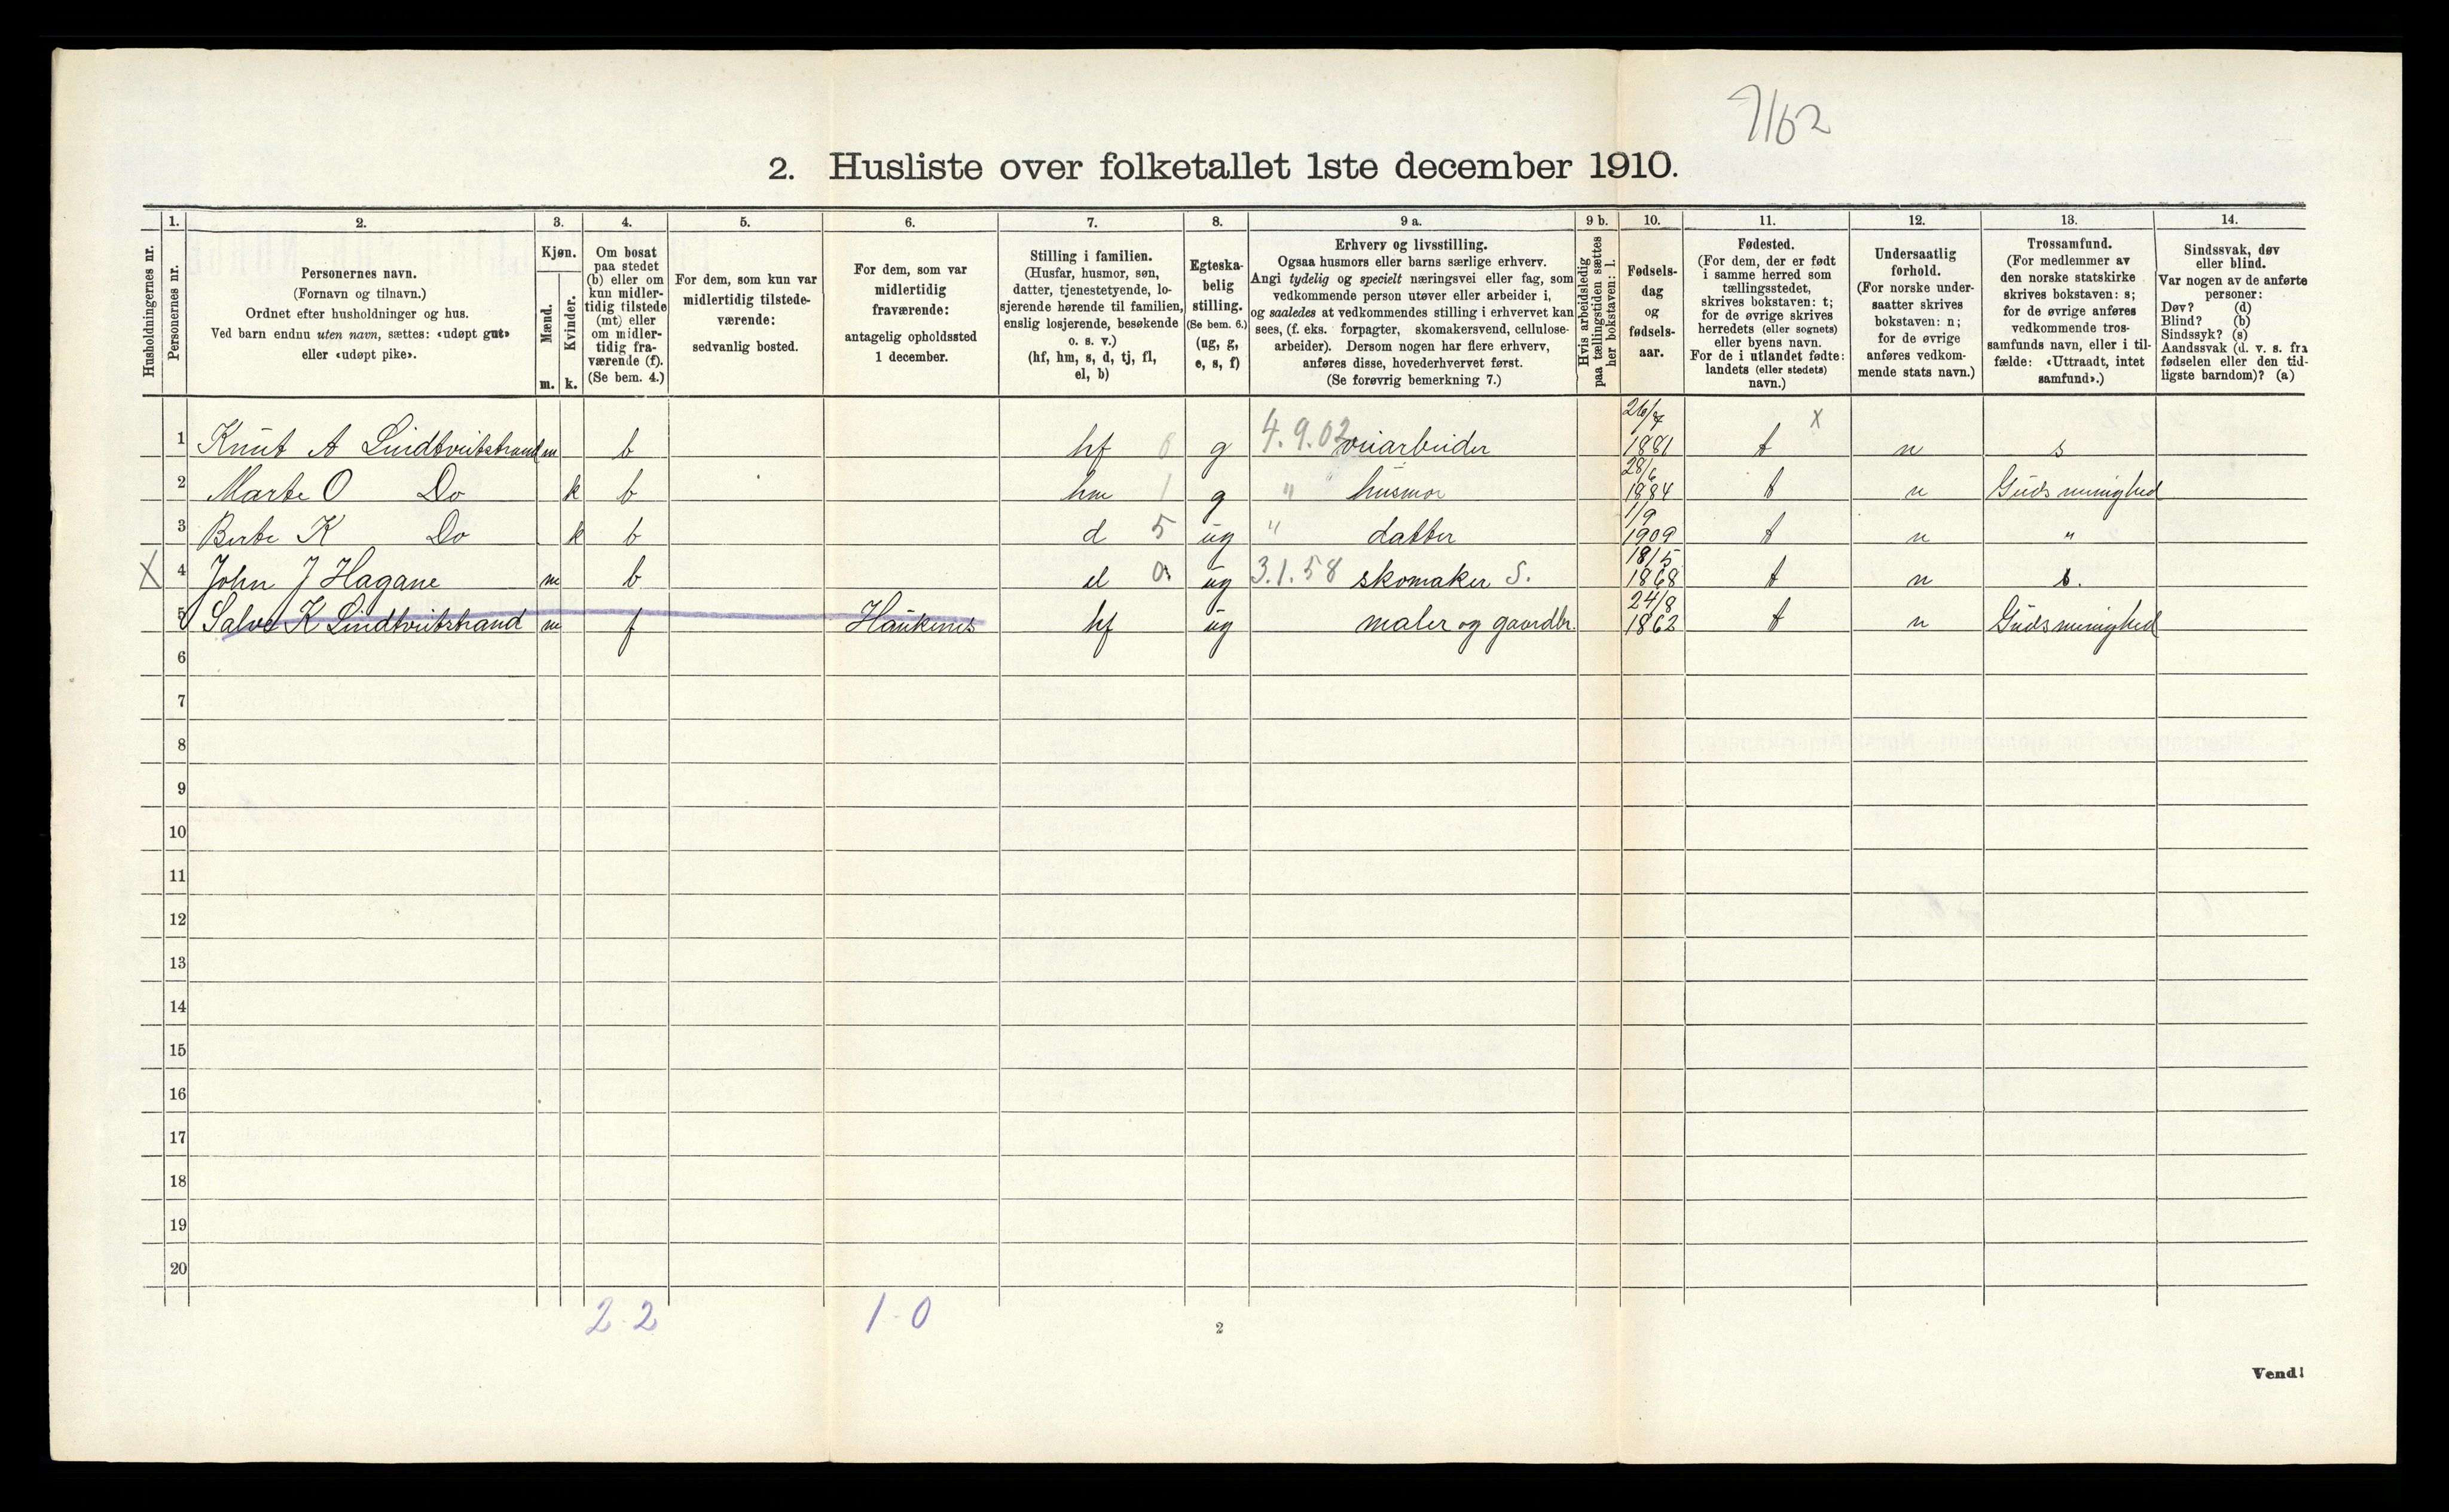 7162
2. Husliste over folketallet 1ste december 1910.
Husholdningernes nr.
1.
Personernes nr.
2.
Personernes navn.
(Fornavn og tilnavn.)
Ordnet efter husholdninger og hus.
Ved barn endnu uten navn, sættes: «udøpt gut»
eller «udøpt pike».
3.
Kjøn.
Mænd.
Kvinder.
m. k.
4.
Om bosat
paa stedet
(b) eller om
kun midler-
tidig tilstede
(mt) eller
om midler-
tidig fra-
værende (f).
(Se bem. 4.)
5.
For dem, som kun var
midlertidig tilstede-
værende:
sedvanlig bosted.
6.
For dem, som var
midlertidig
fraværende:
antagelig opholdssted
1 december.
7.
Stilling i familien.
(Husfar, husmor, søn,
datter, tjenestetyende, lo-
sjerende hørende til familien,
enslig losjerende, besøkende
o. s. v.)
(hf, hm, s, d, tj, fl,
el, b)
8.
Egteska-
belig
stilling.
(Se bem. 6.)
(ug, g,
e, s, f)
9 a.
Erhverv og livsstilling.
Ogsaa husmors eller barns særlige erhverv.
Angi tydelig og specielt næringsvei eller fag, som
vedkommende person utøver eller arbeider i,
og saaledes at vedkommendes stilling i erhvervet kan
sees, (f. eks. forpagter, skomakersvend, cellulose-
arbeider). Dersom nogen har flere erhverv,
anføres disse, hovederhvervet først.
(Se forøvrig bemerkning 7.)
9 b.
Hvis arbeidsledig
paa tællingstiden sættes
her bokstaven: l.
10.
Fødsels-
dag
og
fødsels-
aar.
11.
Fødested.
(For dem, der er født
i samme herred som
tællingsstedet,
skrives bokstaven: t;
for de øvrige skrives
herredets (eller sognets)
eller byens navn.
For de i utlandet fødte:
landets (eller stedets)
navn.)
12.
Undersaatlig
forhold.
(For norske under-
saatter skrives
bokstaven: n;
for de øvrige
anføres vedkom-
mende stats navn.)
13.
Trossamfund.
(For medlemmer av
den norske statskirke
skrives bokstaven: s;
for de øvrige anføres
vedkommende tros-
samfunds navn, eller i til-
fælde: «Uttraadt, intet
samfund».)
14.
Sindssvak, døv
eller blind.
Var nogen av de anførte
personer:
Døv? (d)
Blind? (b)
Sindssyk? (s)
Aandssvak (d. v. s. fra
fødselen eller den tid-
ligste barndom)? (a)
1 Knut A Lindtveitstrand m b hf 0 g 4.9.02 veiarbeider 1881 t X n s
2 Marte O Do k b hm 1 g " husmor 28/6 1884 t n Guds menighed
3 Berte K Do k b d 5 ug " datter 1/9 1909 t n "
X 4 John J Hagane m b el 0 ug 3.1.58 skomaker S. 18/5 1868 t n s.
5 Salve K Lindtveitstrand m f Haukenes hf ug maler og gaardbr. 24/8 1862 t n Guds menighed
6
7
8
9
10
11
12
13
14
15
16
17
18
19
20
2-2 1-0
2
Vend!